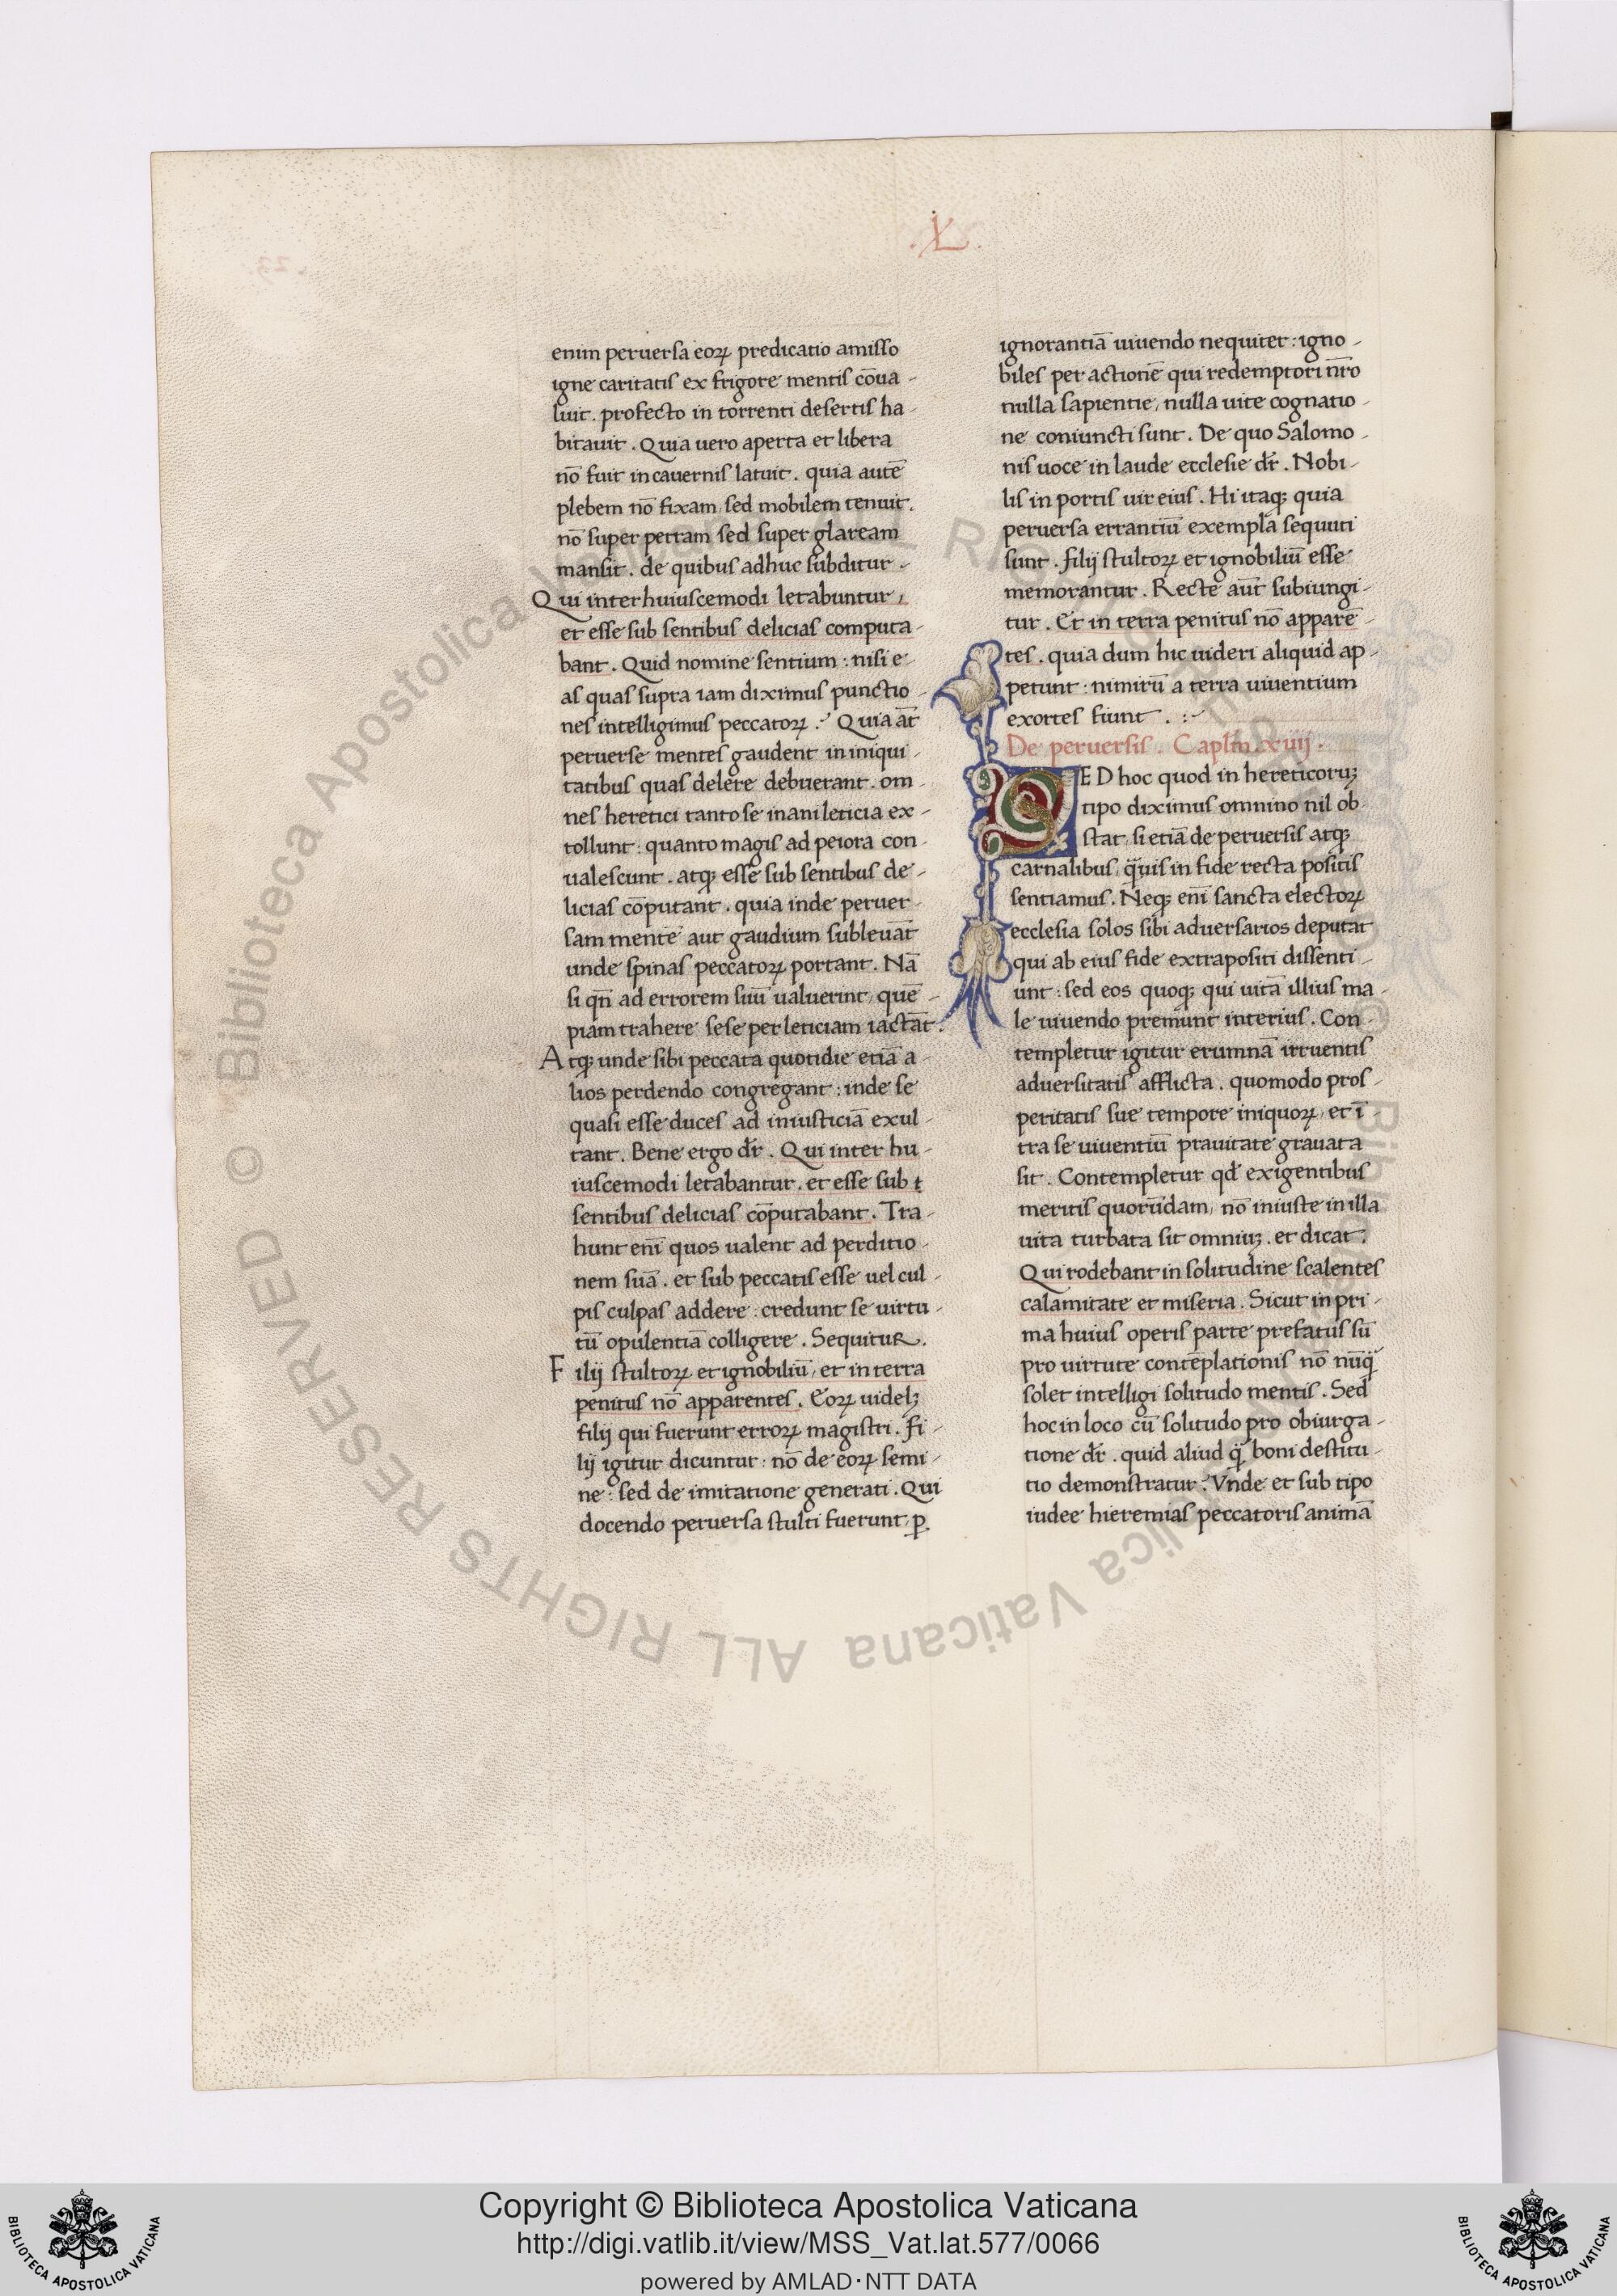 .XL.
enim peruersa eoꝝ predicatio amisso
igne caritatis ex frigore mentis cōua-
luit. profecto in torrenti desertis ha-
bitauit. Quia uero aperta et libera
nō fuit in cauernis latuit. quia autē
plebem nō fixam, sed mobilem tenuit.
nō super petram sed super glaream
mansit. de quibus adhuc subditur-
Qui inter huiuscemodi letabuntur,
et esse sub sentibus delicias computa-
bant. Quid nomine sentium: nisi e-
as quas supra iam diximus punctio-
nes intelligimus peccatoꝝ. Quia āt
peruerse mentes gaudent in iniqui-
tatibus quas delere debuerant. om-
nes heretici tanto se inani leticia ex-
tollunt: quanto magis ad peiora con-
ualescunt. atqꝫ esse sub sentibus de-
licias cōputant. quia inde peruer-
sam mentē aut gaudium subleuāt
unde spinas peccatoꝝ portant. Nā
si qn̄ ad errorem suū ualuerint, quē-
piam trahere sese per leticiam iactāt.
Atqꝫ unde sibi peccata quotidie etiā a-
lios perdendo congregant: inde se
quasi esse duces ad iniusticiā exul-
tant. Bene ergo dr̄. Qui inter hu-
iuscemodi letabantur. et esse sub t
sentibus delicias cōputabant. Tra-
hunt enī quos ualent ad perditio-
nem suā. et sub peccatis esse uel cul-
pis culpas addere: credunt se uirtu-
tū opulentiā colligere. Sequitur.
Filij stultoꝝ et ignobiliū, et in terra
penitus nō apparentes. Eoꝝ uidelꝫ
filij qui fuerunt erroꝝ magistri. Fi-
lij igitur dicuntur: nō de eoꝝ semi-
ne: sed de imitatione generati. Qui
docendo peruersa stulti fuerunt, ꝑ
ignorantiā uiuendo nequiter: igno-
biles per actionē qui redemptori nr̄o
nulla sapientie, nulla uite cognatio-
ne coniuncti sunt. De quo Salomo-
nis uoce in laude ecclesie dr̄. Nobi-
lis in portis uir eius. Hi itaqꝫ quia
peruersa errantiū exempla sequuti
sunt. filij stultoꝝ et ignobiliū esse
memorantur. Recte aūt subiungi-
tur. Et in terra penitus nō apparē-
tes. quia dum hic uideri aliquid ap-
petunt: nimirū a terra uiuentium
exortes fiunt. :-
De peruersis. Caplm̄. xviij.
SED hoc quod in hereticoruꝫ
tipo diximus omnino nil ob-
stat, si etiā de peruersis atqꝫ
carnalibus, q̈uis in fide recta positis
sentiamus. Neqꝫ enī sancta electoꝝ
ecclesia solos sibi aduersarios deputat
qui ab eius fide extrapositi dissenti-
unt: sed eos quoqꝫ qui uitā illius ma-
le uiuendo premunt interius. Con-
templetur igitur erumnā irruentis
aduersitatis afflicta. quomodo pros-
peritatis sue tempore iniquoꝝ, et ī-
tra se uiuentiū prauitate grauata
sit. Contempletur qđ exigentibus
meritis quorūdam, nō iniuste in illa
uita turbata sit omniuꝫ. et dicat.
Qui rodebant in solitudine scalentes
calamitate et miseria. Sicut in pri-
ma huius operis parte prefatus sū
pro uirtute contēplationis nō nūq̈
solet intelligi solitudo mentis. Sed
hoc in loco cū solitudo pro obiurga-
tione dr̄. quid aliud q̈ boni destitu-
tio demonstratur? Vnde et sub tipo
iudee hieremias peccatoris animā
© Biblioteca Apostolica Vaticana ALL RIGHTS RESERVED
Copyright © Biblioteca Apostolica Vaticana
http://digi.vatlib.it/view/MSS_Vat.lat.577/0066
powered by AMLAD·NTT DATA
BIBLIOTECA APOSTOLICA VATICANA
BIBLIOTECA APOSTOLICA VATICANA